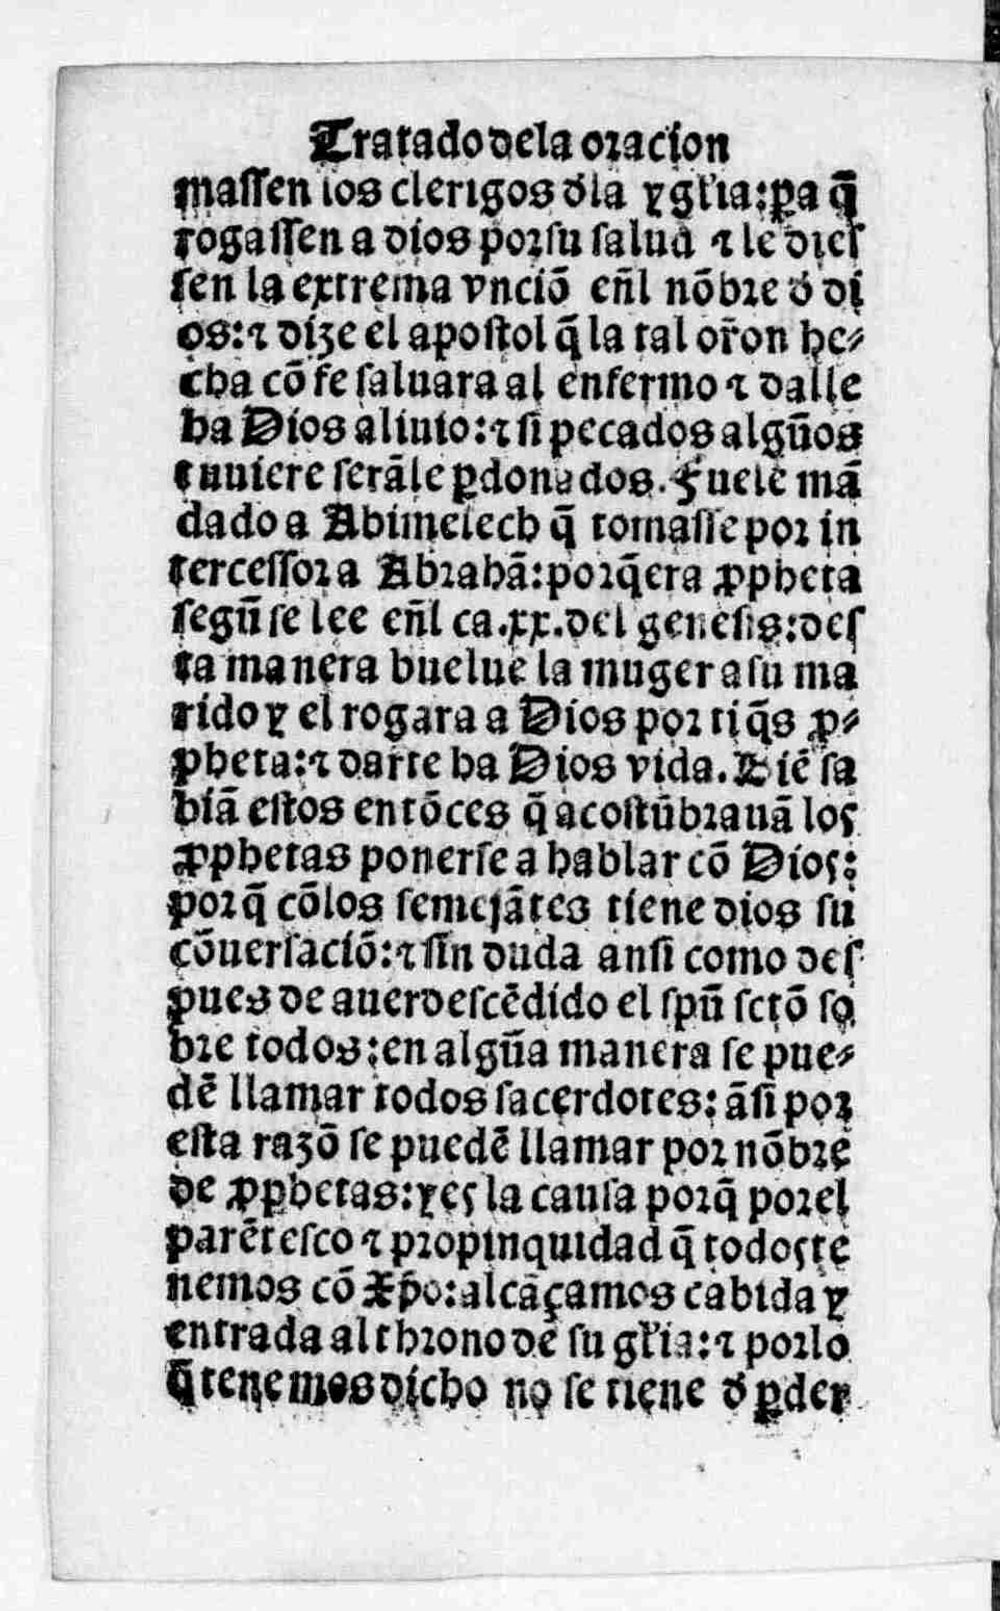 Tratado dela oracion
massen los clerigos d̄la ygl̄ia: ꝑa q̄
rogassen a dios por su salud ⁊ le dies
sen la extrema vnciō en̄l nōbre đ di
os: ⁊ dize el apostol q̄ la tal or̄on he⸗
cha cō fe saluara al enfermo ⁊ dalle
ha Dios aliuio: ⁊ si pecados algūos
tuuiere serāle ꝑdonados. Fuele mā
dado a Abimelech q̄ tomasse por in
tercessor a Abrahā: porq̄ era ꝓpheta
segū se lee en̄l ca. xx. del genesis: des
ta manera buelue la muger a su ma
rido y el rogara a Dios por ti q̄s ꝓ⸗
pheta: ⁊ darte ha Dios vida. Biē sa
biā estos entōces q̄ acostūbrauā los
ꝓphetas ponerse a hablar cō Dios:
porq̄ cōlos semejātes tiene dios su
cōuersaciō: ⁊ sin duda ansi como des
pues de auer descēdido el spū sctō so
bre todos: en algūa manera se pue⸗
dē llamar todos sacerdotes: āsi por
esta razō se puedē llamar por nōbre
de ꝓphetas: y es la causa porq̄ por el
parētesco ⁊ propinquidad q̄ todos te
nemos cō Xp̄o: alcāçamos cabida y
entrada al throno de su gl̄ia: ⁊ por lo
q̄ tenemos dicho no se tiene đ ꝑder